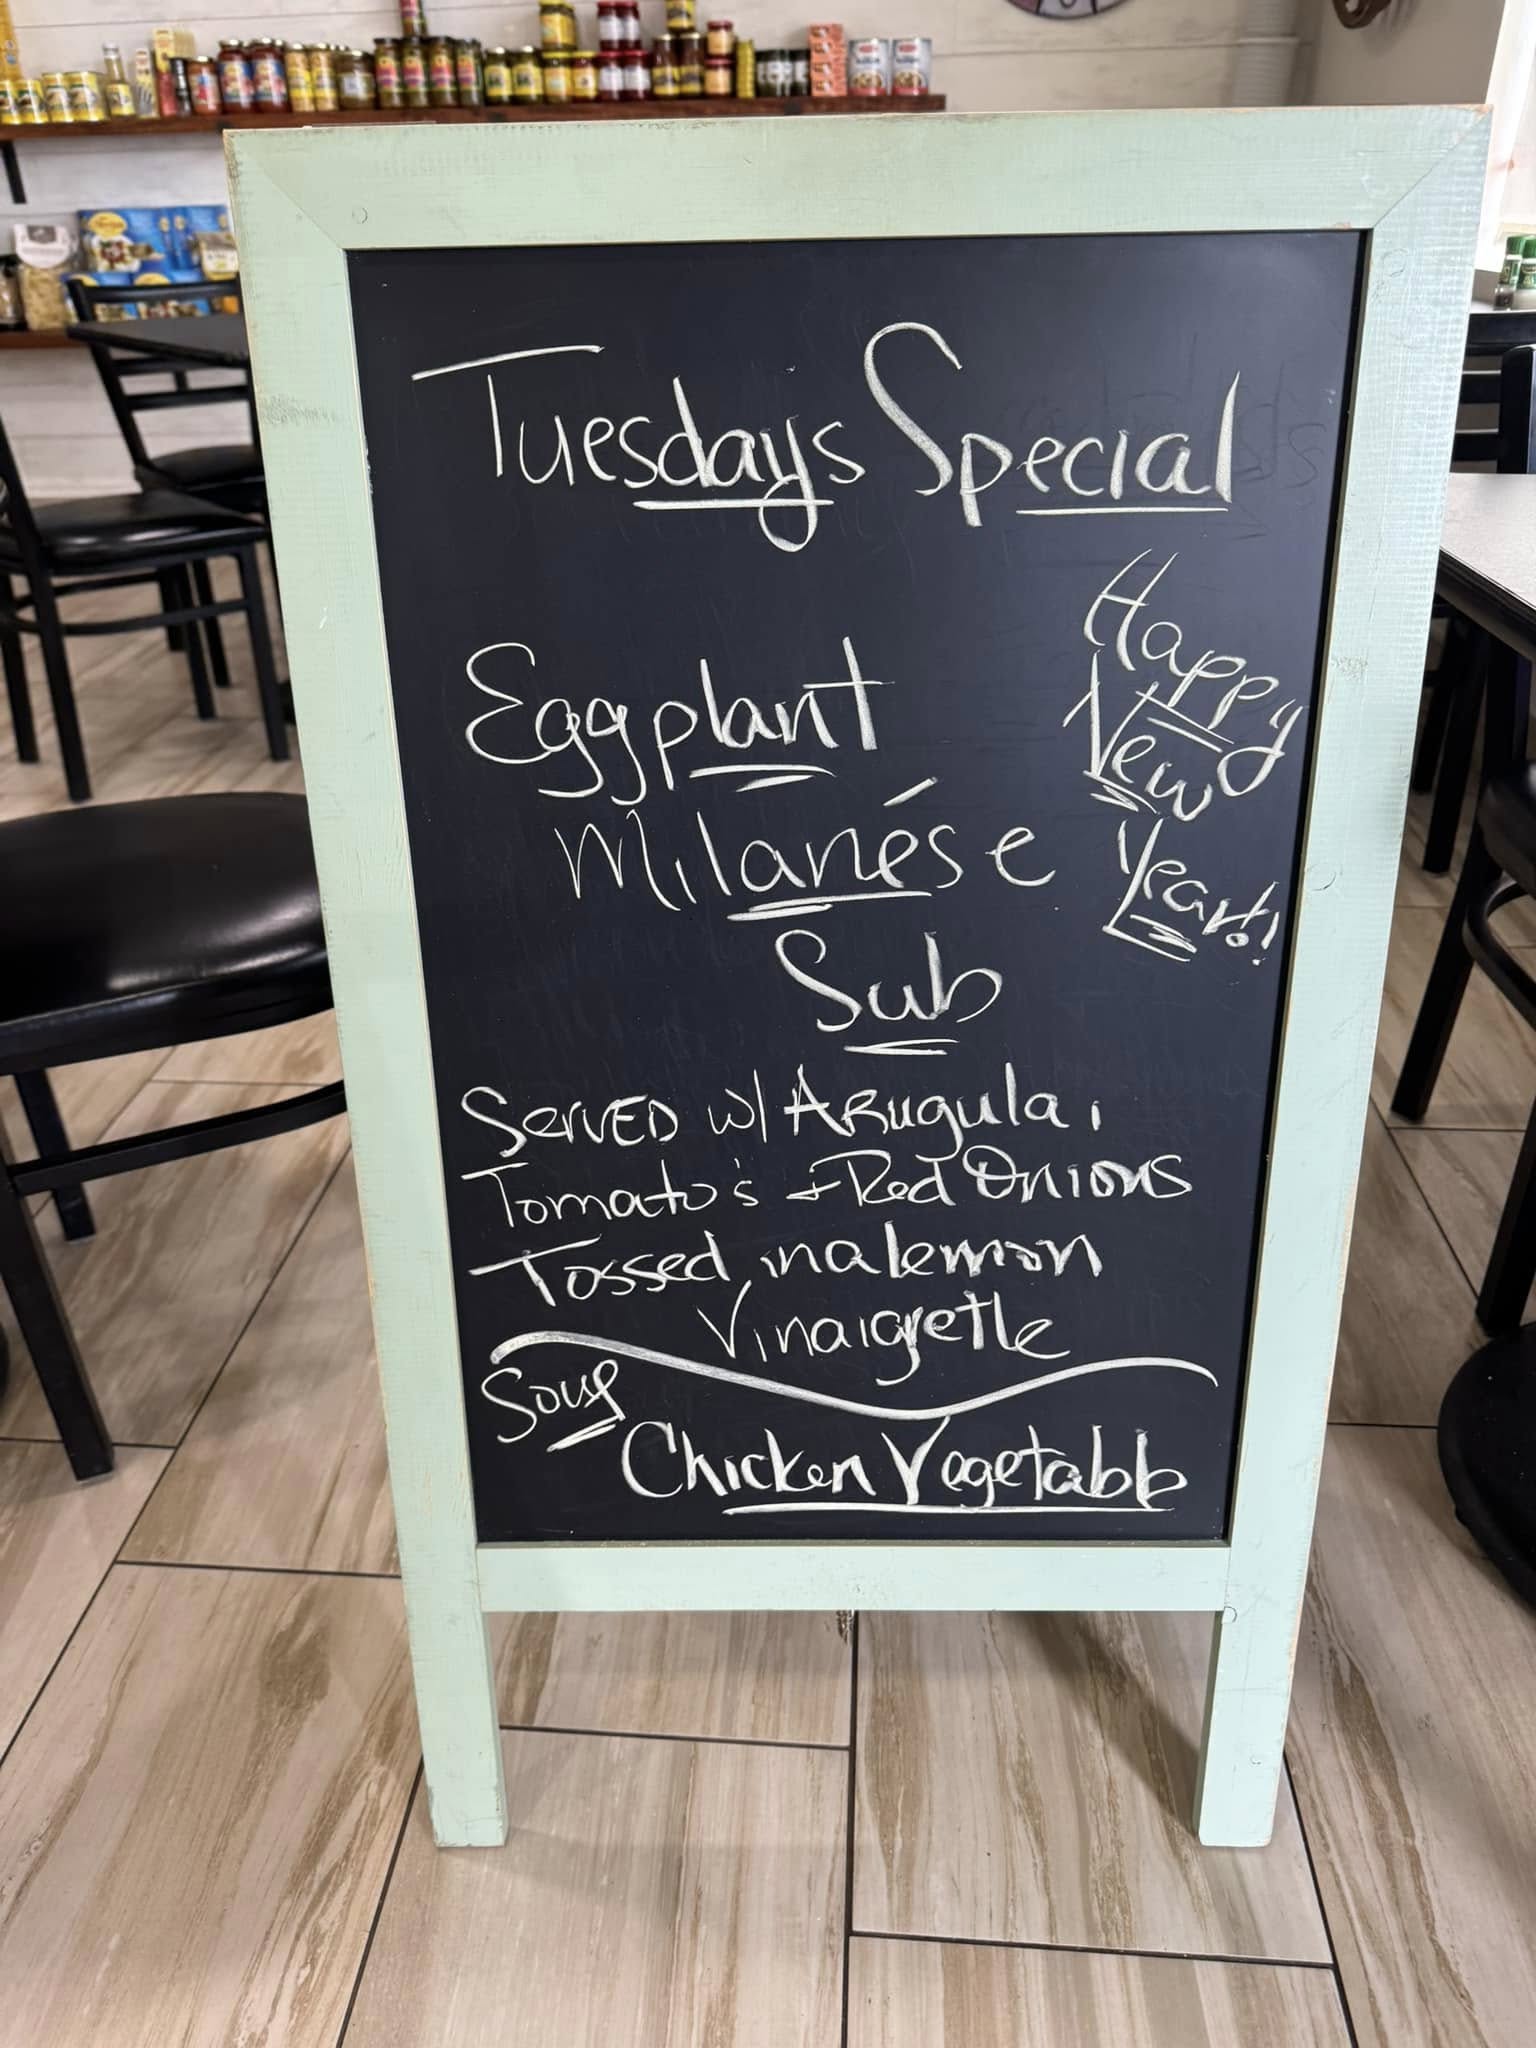 Tuesdays Special
Happy
New
Year!!
Eggplant
Milanése
Sub
Served w/ Arugula,
Tomato's + Red Onions
Tossed in a lemon
Vinaigrette
Soup
Chicken Vegetable